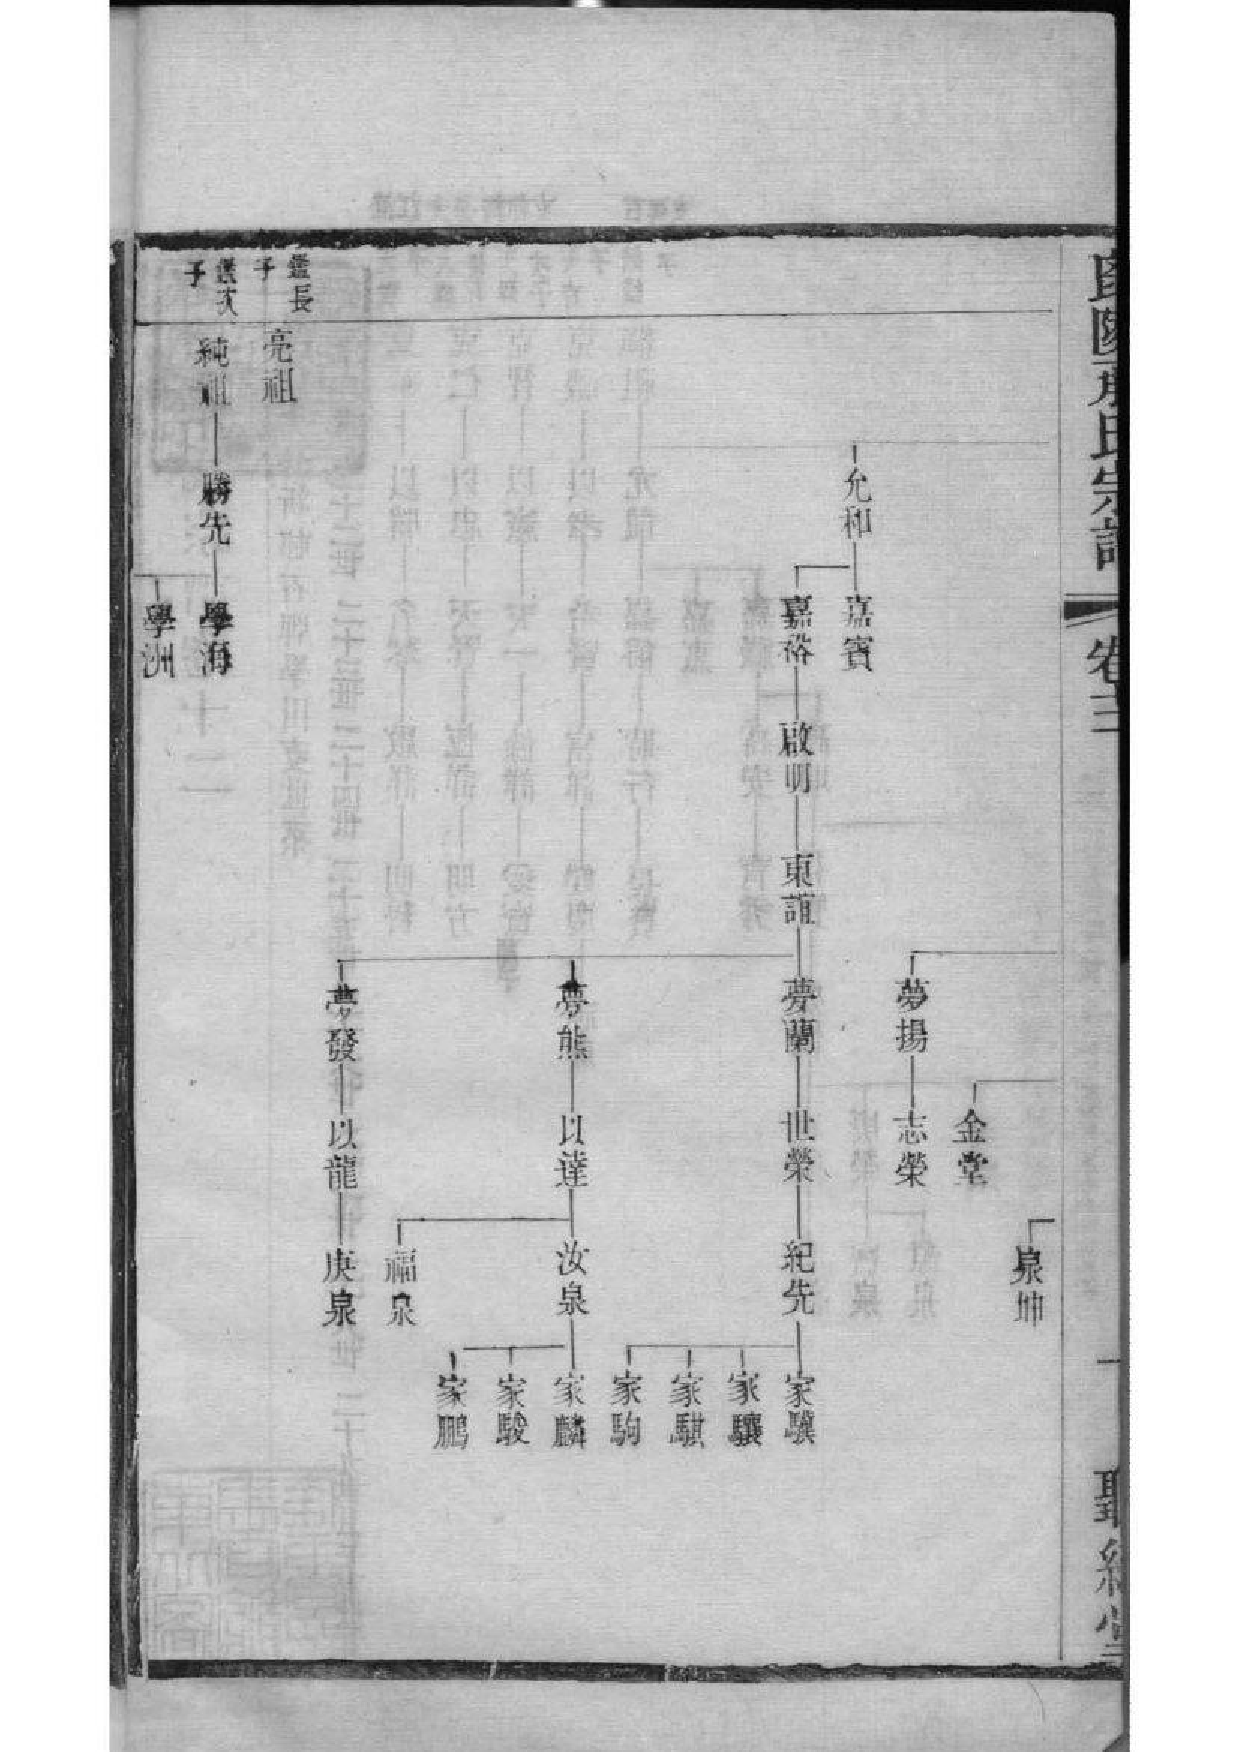 宗譜
卷十二
一
泉坤
金堂
夢揚
志榮
允和
嘉賓
嘉裕
啟明
東誼
夢蘭
世榮
紀先
家驥
家驤
家騏
家駒
夢熊
以達
汝泉
家麟
家駿
家鵬
福泉
夢發
以龍
庚泉
鑑長子
亮祖
鑑次子
純祖
勝先
學海
學洲